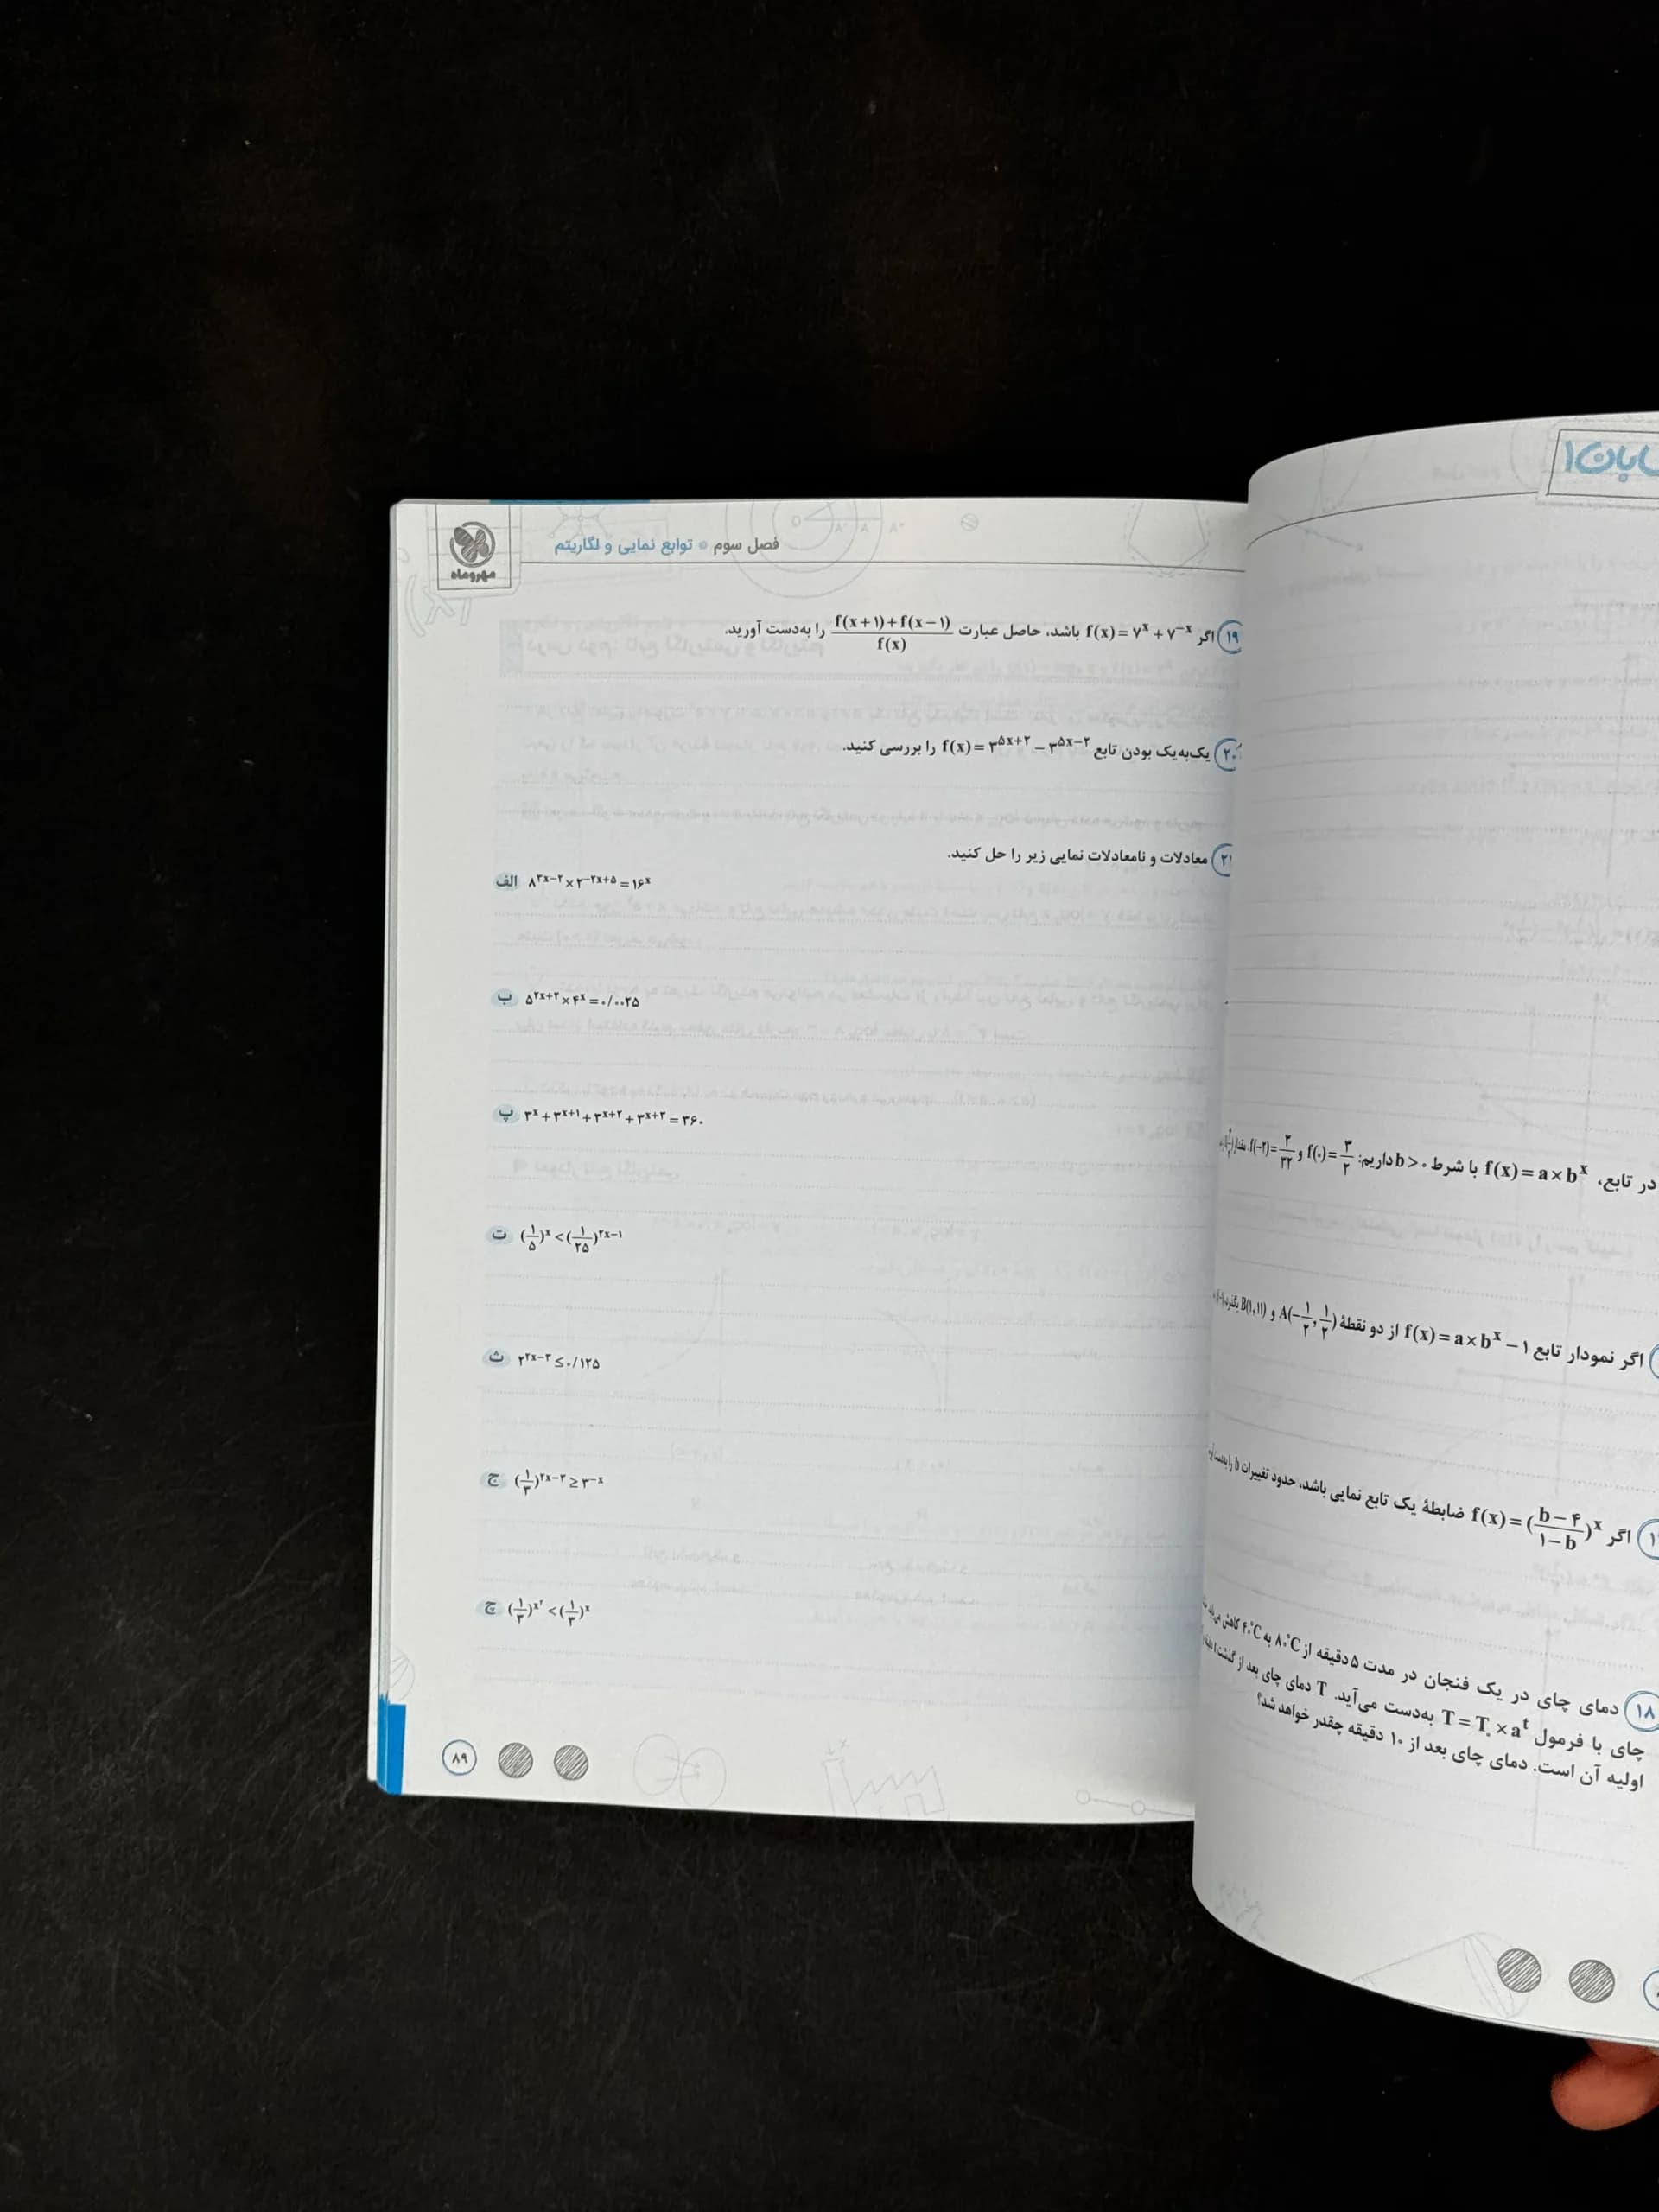 حسابان۱
در تابع، f(x) = a×b^x با شرط b > ۰ داریم: f(۰) = ۳/۲ و f(-۲) = ۳/۳۲
اگر نمودار تابع f(x) = a×b^x − ۱ از دو نقطهٔ A(−۱/۲, ۱/۲) و B(۱, ۱۱) بگذرد
اگر f(x) = ((b−۴)/(۱−b))^x ضابطهٔ یک تابع نمایی باشد، حدود تغییرات b را به‌دست
۱۸ دمای چای در یک فنجان در مدت ۵ دقیقه از ۸۰°C به ۴۰°C کاهش می‌یابد.
چای با فرمول T = T۰ × a^t به‌دست می‌آید. T دمای چای بعد از گذشت t دقیقه
اولیه آن است. دمای چای بعد از ۱۰ دقیقه چقدر خواهد شد؟
فصل سوم • توابع نمایی و لگاریتم
مهروماه
۱۹ اگر f(x) = ۷^x + ۷^−x باشد، حاصل عبارت (f(x+۱)+f(x−۱))/f(x) را به‌دست آورید.
۲۰ یک‌به‌یک بودن تابع f(x) = ۳^(۵x+۲) − ۳^(۵x−۲) را بررسی کنید.
۲۱ معادلات و نامعادلات نمایی زیر را حل کنید.
الف ۸^(۳x−۲) × ۲^(−۲x+۵) = ۱۶^x
ب ۵^(۲x+۲) × ۴^x = ۰/۰۰۲۵
پ ۳^x + ۳^(x+۱) + ۳^(x+۲) + ۳^(x+۳) = ۳۶۰
ت (۱/۵)^x < (۱/۲۵)^(۲x−۱)
ث ۲^(۲x−۳) ≤ ۰/۱۲۵
ج (۱/۳)^(۲x−۳) ≥ ۳^−x
چ (۱/۳)^(x^۲) < (۱/۳)^x
۸۹